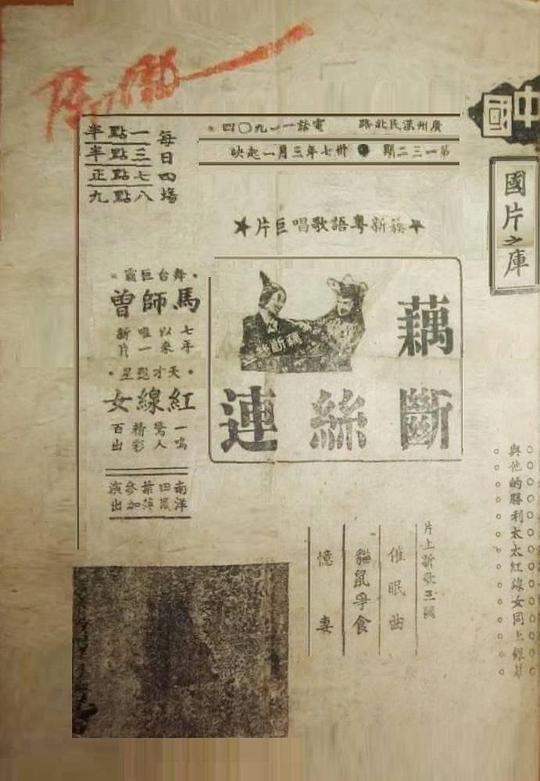 中國
國片之庫
廣州漢民北路 電話一一九〇四
第一三二期 卅七年三月一起映
每日四場
一點半
三點半
七點正
八點九
簇新粵語歌唱巨片
藕斷絲連
舞台巨霸
馬師曾
七年
以來
唯一
新片
天才艷星
紅線女
一鳴
驚人
精彩
百出
南洋
參加
演出
片上新歌三
催眠曲
貓鼠爭食
憶妻
與他的勝利太太紅線女同上銀幕